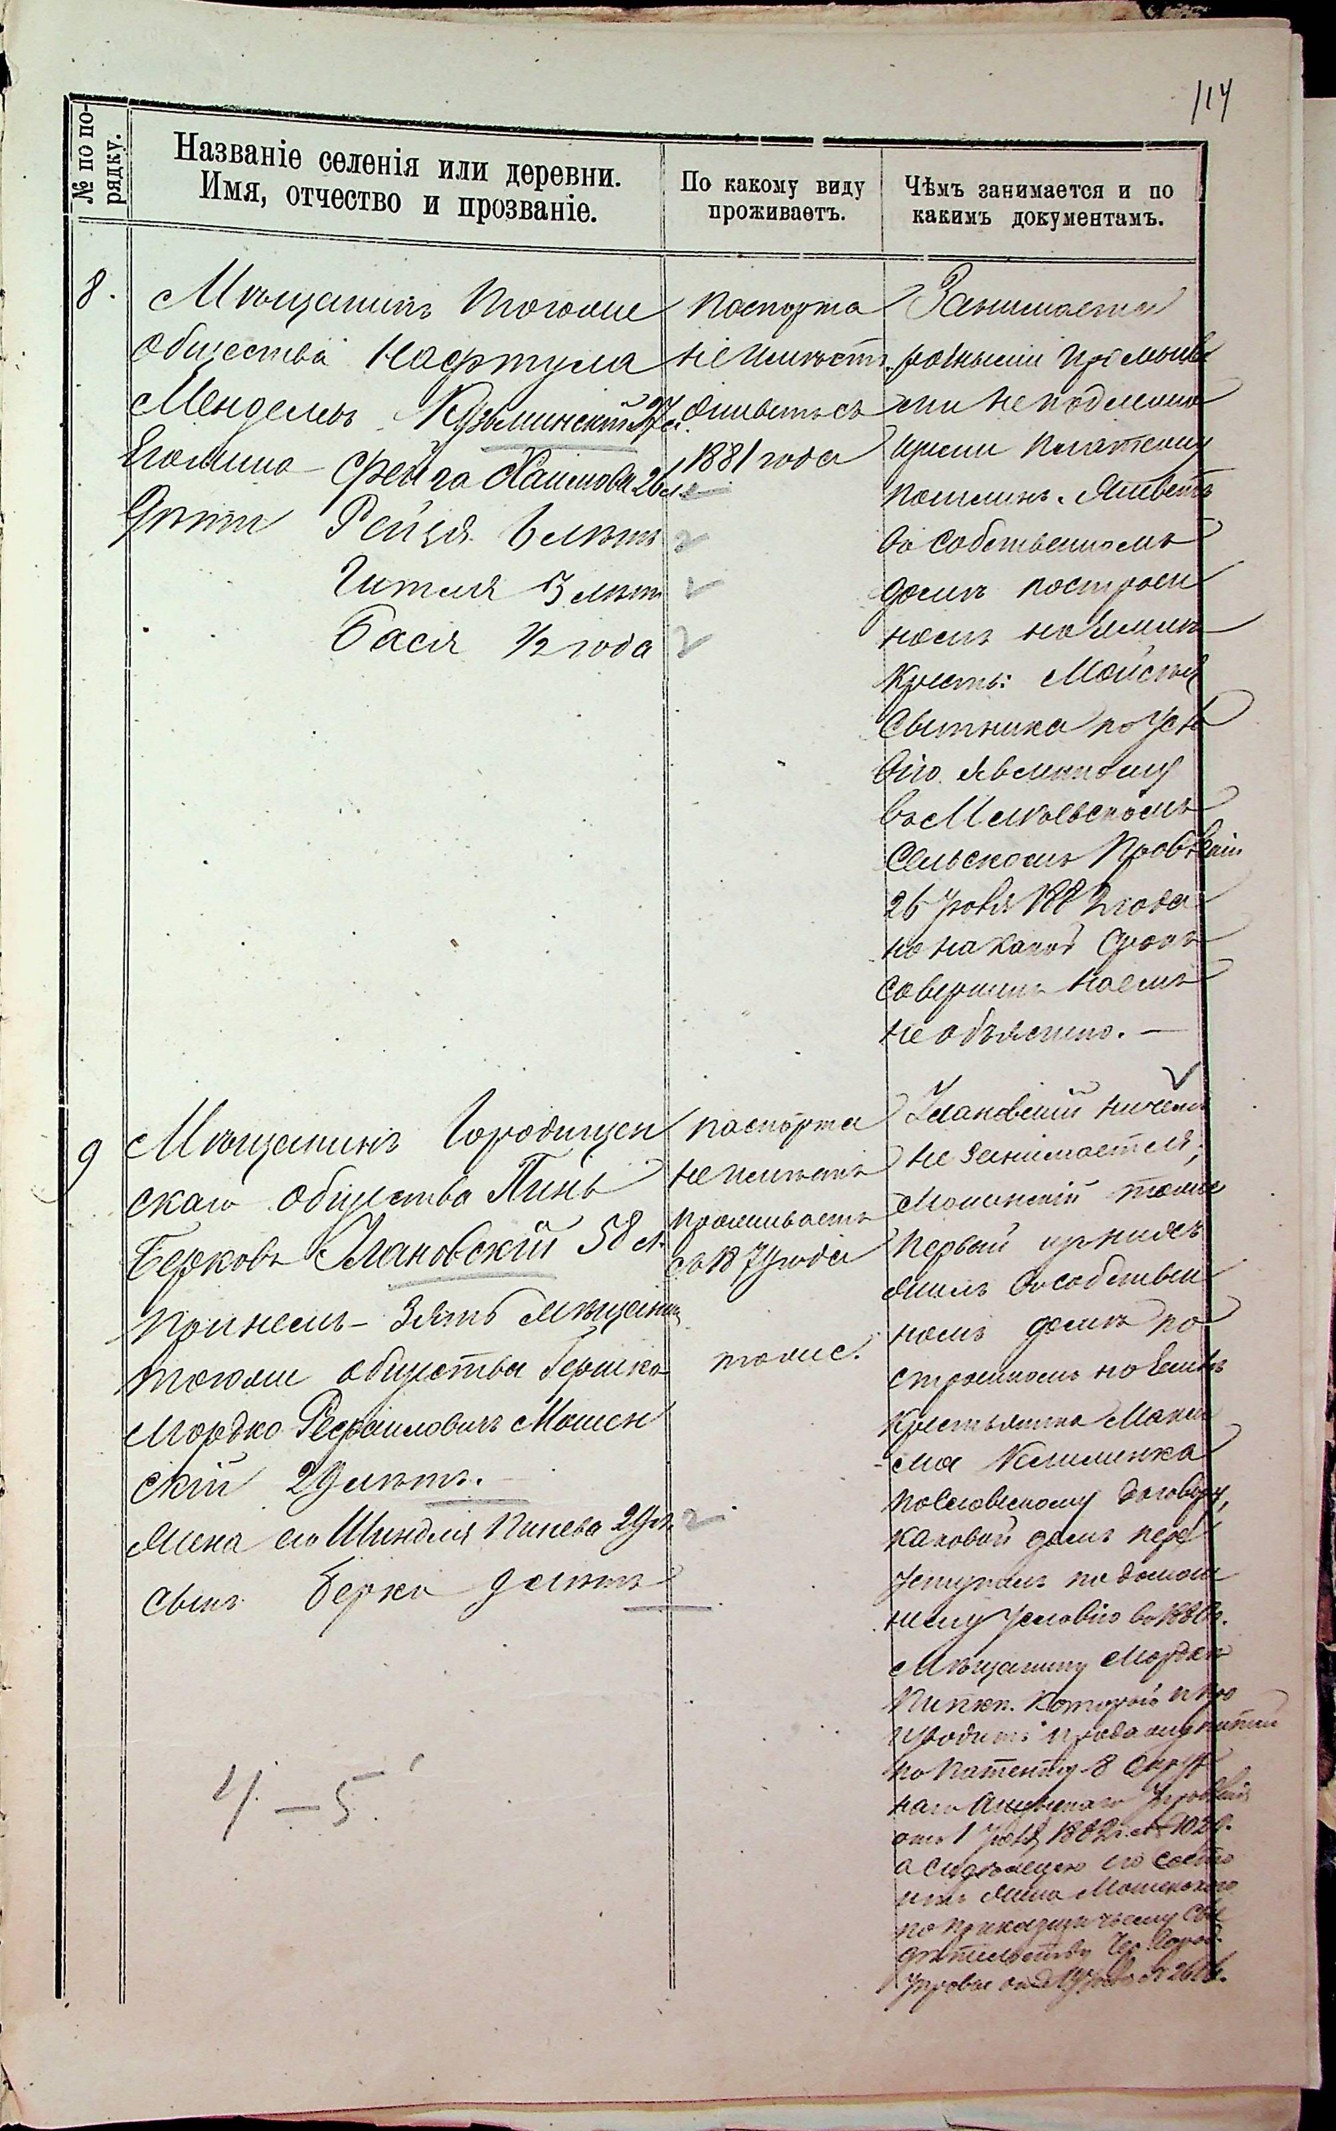 114
№ по по-
рядку.
Названіе селенія или деревни.
Имя, отчество и прозваніе.
По какому виду
проживаетъ.
Чѣмъ занимается и по
какимъ документамъ.
8.
Мѣщанинъ того же
общества Нафтула
Менделевъ Кузьминскій 27 л.
Его жена Фейга Хаимова 26 л.
Дѣти Рейзя 6 лѣтъ
Гителя 3 лѣтъ
Бася ½ года
паспорта
не имѣетъ.
Живетъ съ
1881 года
Занимается
разными промысла
ми не подлежа
щими платежу
пошлинъ. Живетъ
въ собственномъ
домѣ построен
номъ на землѣ
Крест: Мойсея
Сытника по усло
вію явленному
въ
Сельскомъ Правленіи
26 1882 года
но на какой срокъ
совершенъ наемъ
не объяснено. —
9
Мѣщанинъ Городищен
скаго общества Пинь
Берковъ Улановскій 58 л.
При немъ – зять мѣщанинъ
того же общества Гершко
Мордко Рефоиловичъ Мошен
скій 29 лѣтъ.
Жена его Шиндля Пинева 29 л.
сынъ Берко 9 лѣтъ
паспорта
не имѣетъ
проживаетъ
съ 1879 года
тоже.
Улановскій ничемъ
не занимается,
Мошенскій тоже
Первый прежде
жилъ въ собствен
номъ домѣ по
строенномъ на землѣ
крестьянина Макси
ма Клименка
по словесному договору,
каковой домъ пере
уступилъ по домаш
нему условію въ 1880 г.
Мѣщанину Мордкѣ
который и про
изводитъ продажу питій
по патенту 8 Округ
наго Акцизнаго Управленія
отъ 1 1882 г. №
а сидѣлицею его состо
итъ жена Мошенскаго
по приказчичьему сви
дѣтельству
Управы
4 – 5